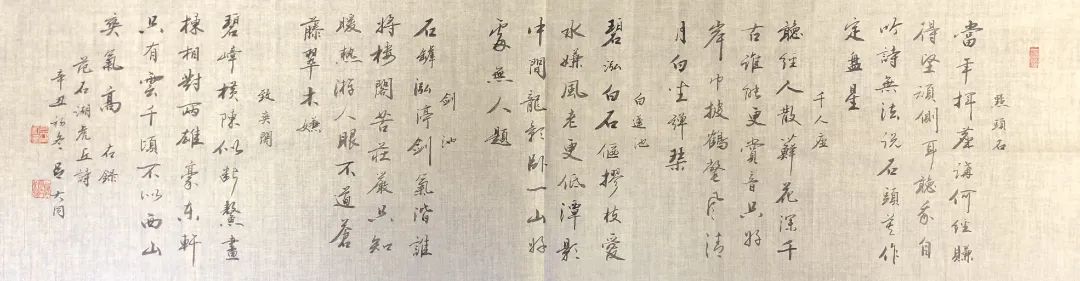 點頭石
當年揮麈講何經賺
得堅頑側耳聽我自
吟詩無法說石頭莫作
定盤星
千人座
聽經人散蘚花深千
古誰能更賞音只好
岸巾披鶴氅風清
月白坐彈琴
白蓮池
碧泓白石偃樛枝愛
水嫌風老更低潭影
中間龍影卧一山好
處無人題
劍池
石罅泓渟劍氣潛誰
將樓閣苦莊嚴只知
暖熱游人眼不道蒼
藤翠木嫌
致爽閣
碧峰橫陳似斷鼇畫
棟相對兩雄豪東軒
只有雲千頃不似西山
爽氣高 右錄
范石湖虎丘詩
辛丑初冬呂大同